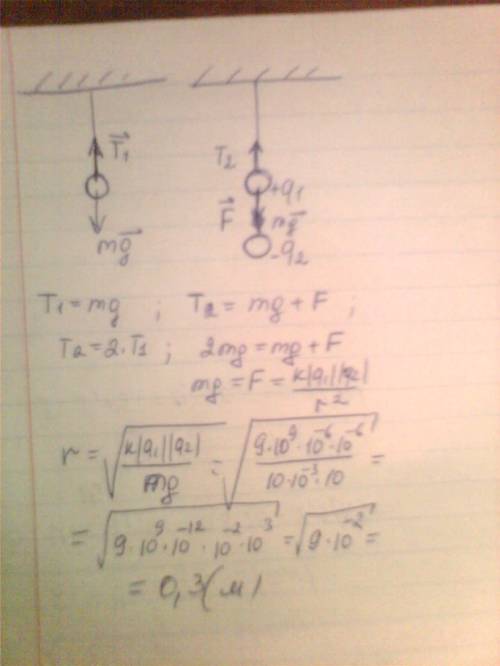 T₁ T₂ +q₁
mg F mg -q₂
T₁ = mg ; T₂ = mg + F ;
T₂ = 2·T₁ ; 2mg = mg + F
mg = F = k|q₁||q₂| / r²
r = √(k|q₁||q₂| / mg) = √(9·10⁹·10⁻⁶·10⁻⁶ / 10·10⁻³·10) =
= √(9·10⁹·10⁻¹²·10⁻²·10³) = √(9·10⁻²) =
= 0,3 (м)